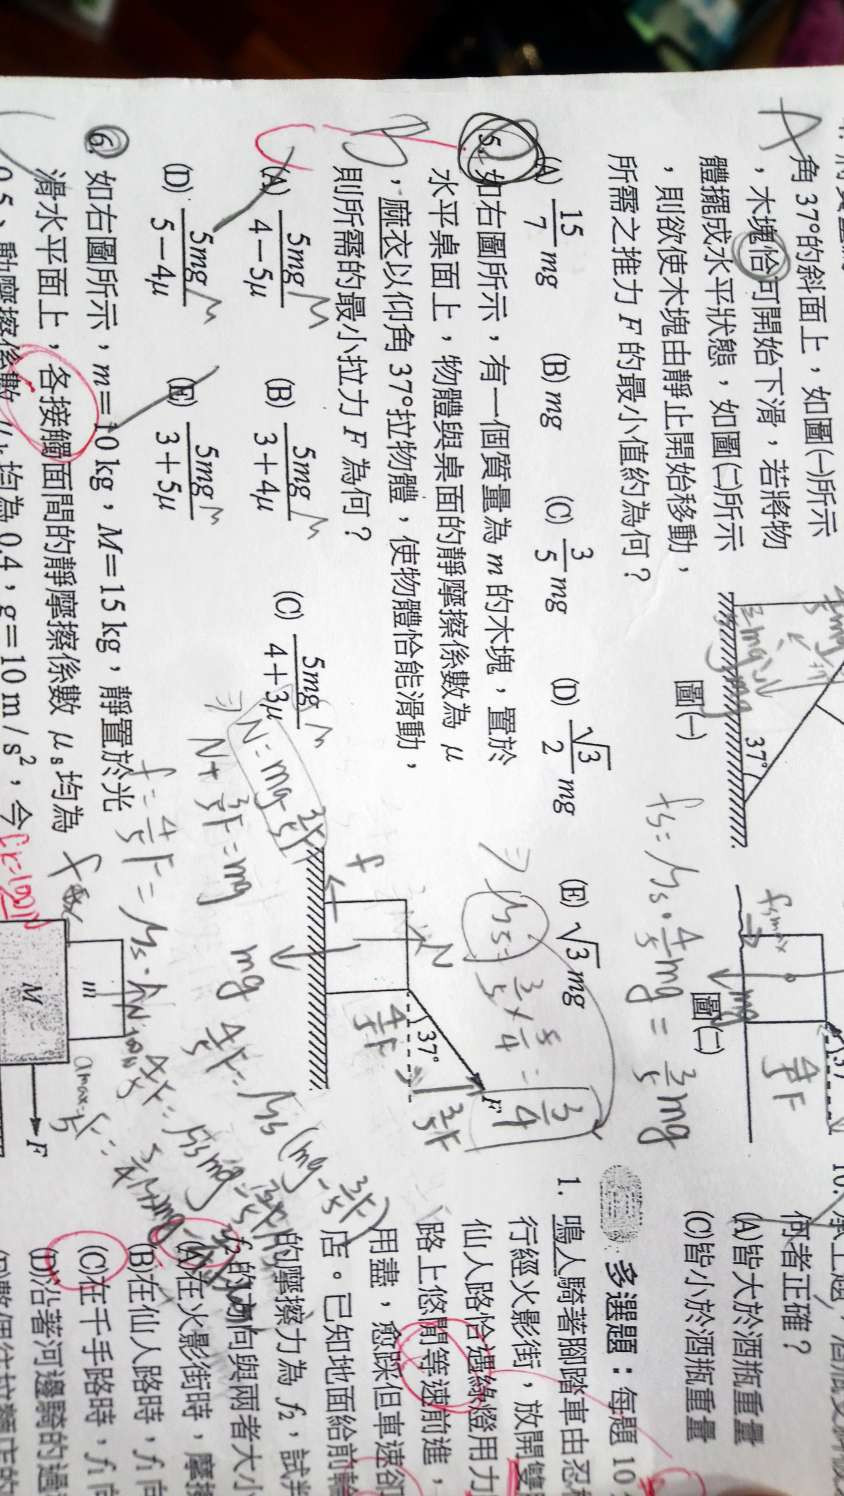 角37°的斜面上，如圖㈠所示
，木塊恰可開始下滑，若將物
體擺成水平狀態，如圖㈡所示
，則欲使木塊由靜止開始移動，
所需之推力 F 的最小值約為何？
37°
圖㈠
圖㈡
fs max
mg
4/5 F
fs = μs · 4/5 mg = 3/5 mg
(A) 15/7 mg (B) mg (C) 3/5 mg (D) √3/2 mg (E) √3 mg
⇒ μs = 3/5 × 5/4 = 3/4
5. 如右圖所示，有一個質量為 m 的木塊，置於
水平桌面上，物體與桌面的靜摩擦係數為 μ
，麻衣以仰角37°拉物體，使物體恰能滑動，
則所需的最小拉力 F 為何？
(A) 5mg μ/4－5μ (B) 5mg μ/3＋4μ (C) 5mg μ/4＋3μ
(D) 5mg μ/5－4μ (E) 5mg μ/3＋5μ
f
N
37°
F
4/5 F
3/5 F
mg
N = mg - 3/5 F
⇒ N + 3/5 F = mg
4/5 F = μs (mg - 3/5 F)
6. 如右圖所示，m＝10 kg，M＝15 kg，靜置於光
滑水平面上，各接觸面間的靜摩擦係數 μs 均為
0.5、動摩擦係數 μk 均為 0.4，g＝10 m/s²，今
m
M
F
10. 承上題，
何者正確？
(A)皆大於酒瓶重量
(C)皆小於酒瓶重量
多選題：每題 10
1. 鳴人騎著腳踏車由忍
行經火影街，放開雙
仙人路恰遇綠燈用力
路上悠閒等速前進，
用盡，愈踩但車速卻
店。已知地面給前輪
的摩擦力為 f₂，試判
的方向與兩者大小
(A)在火影街時，摩擦
(B)在仙人路時，f₁ 向
(C)在千手路時，f₁ 向
(D)沿著河邊騎的過